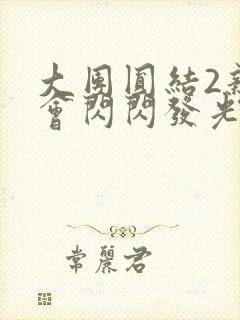 大團圓結2
會閃閃發光
常麗君